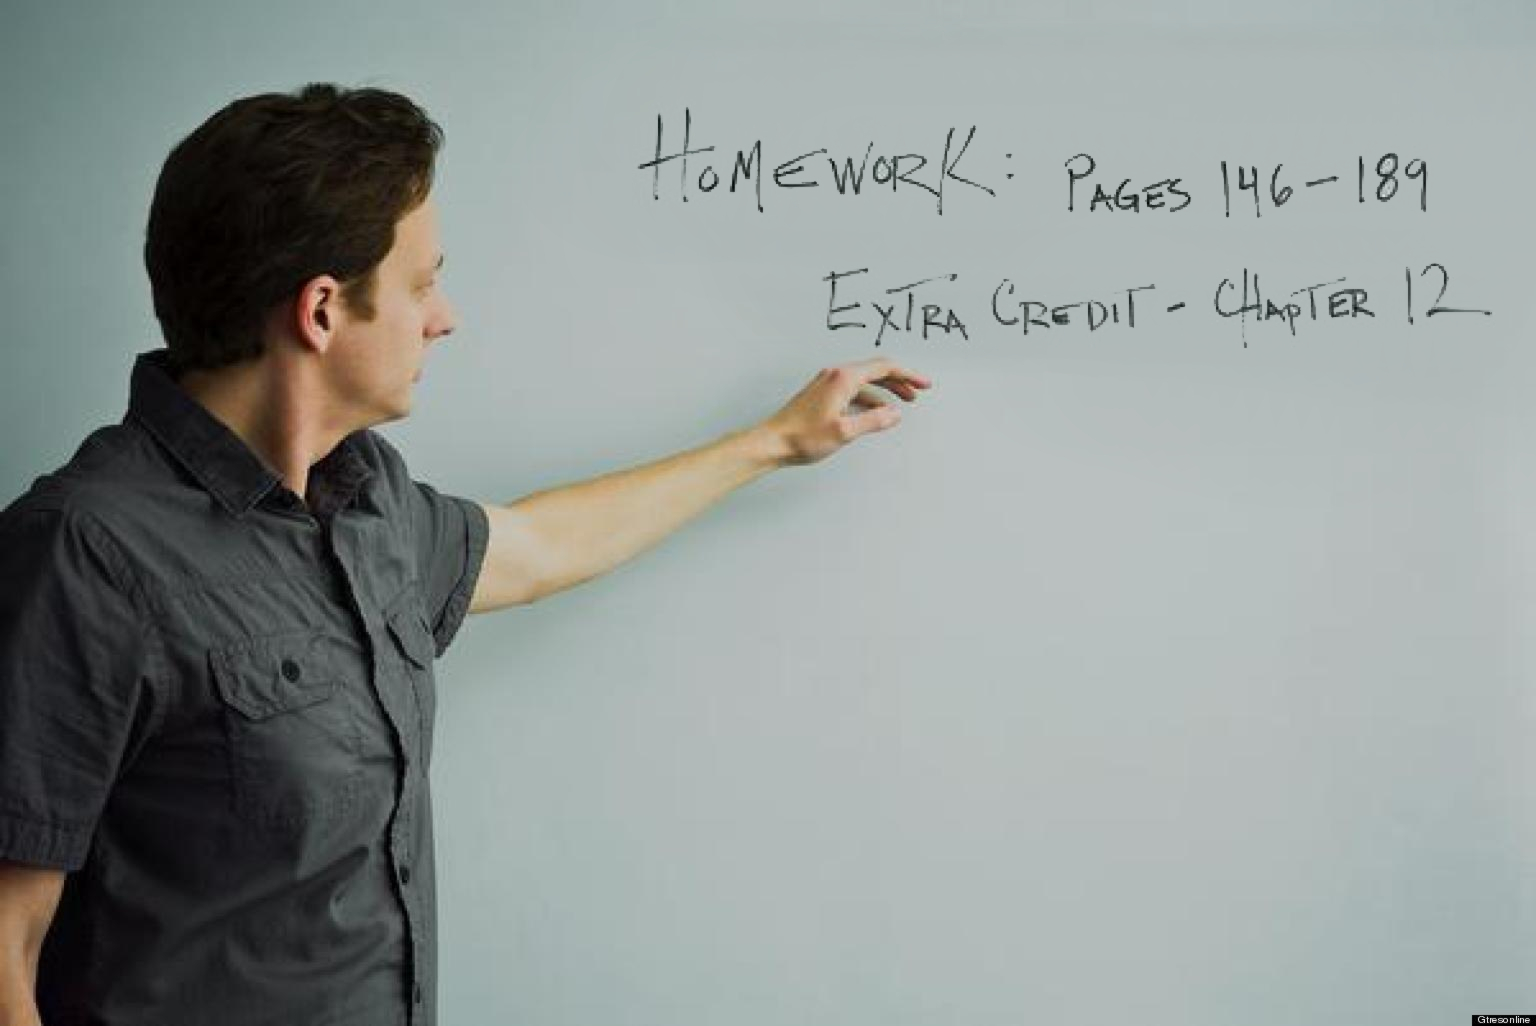 HOMEWORK: PAGES 146-189
EXTRA CREDIT - CHAPTER 12
Gtresonline